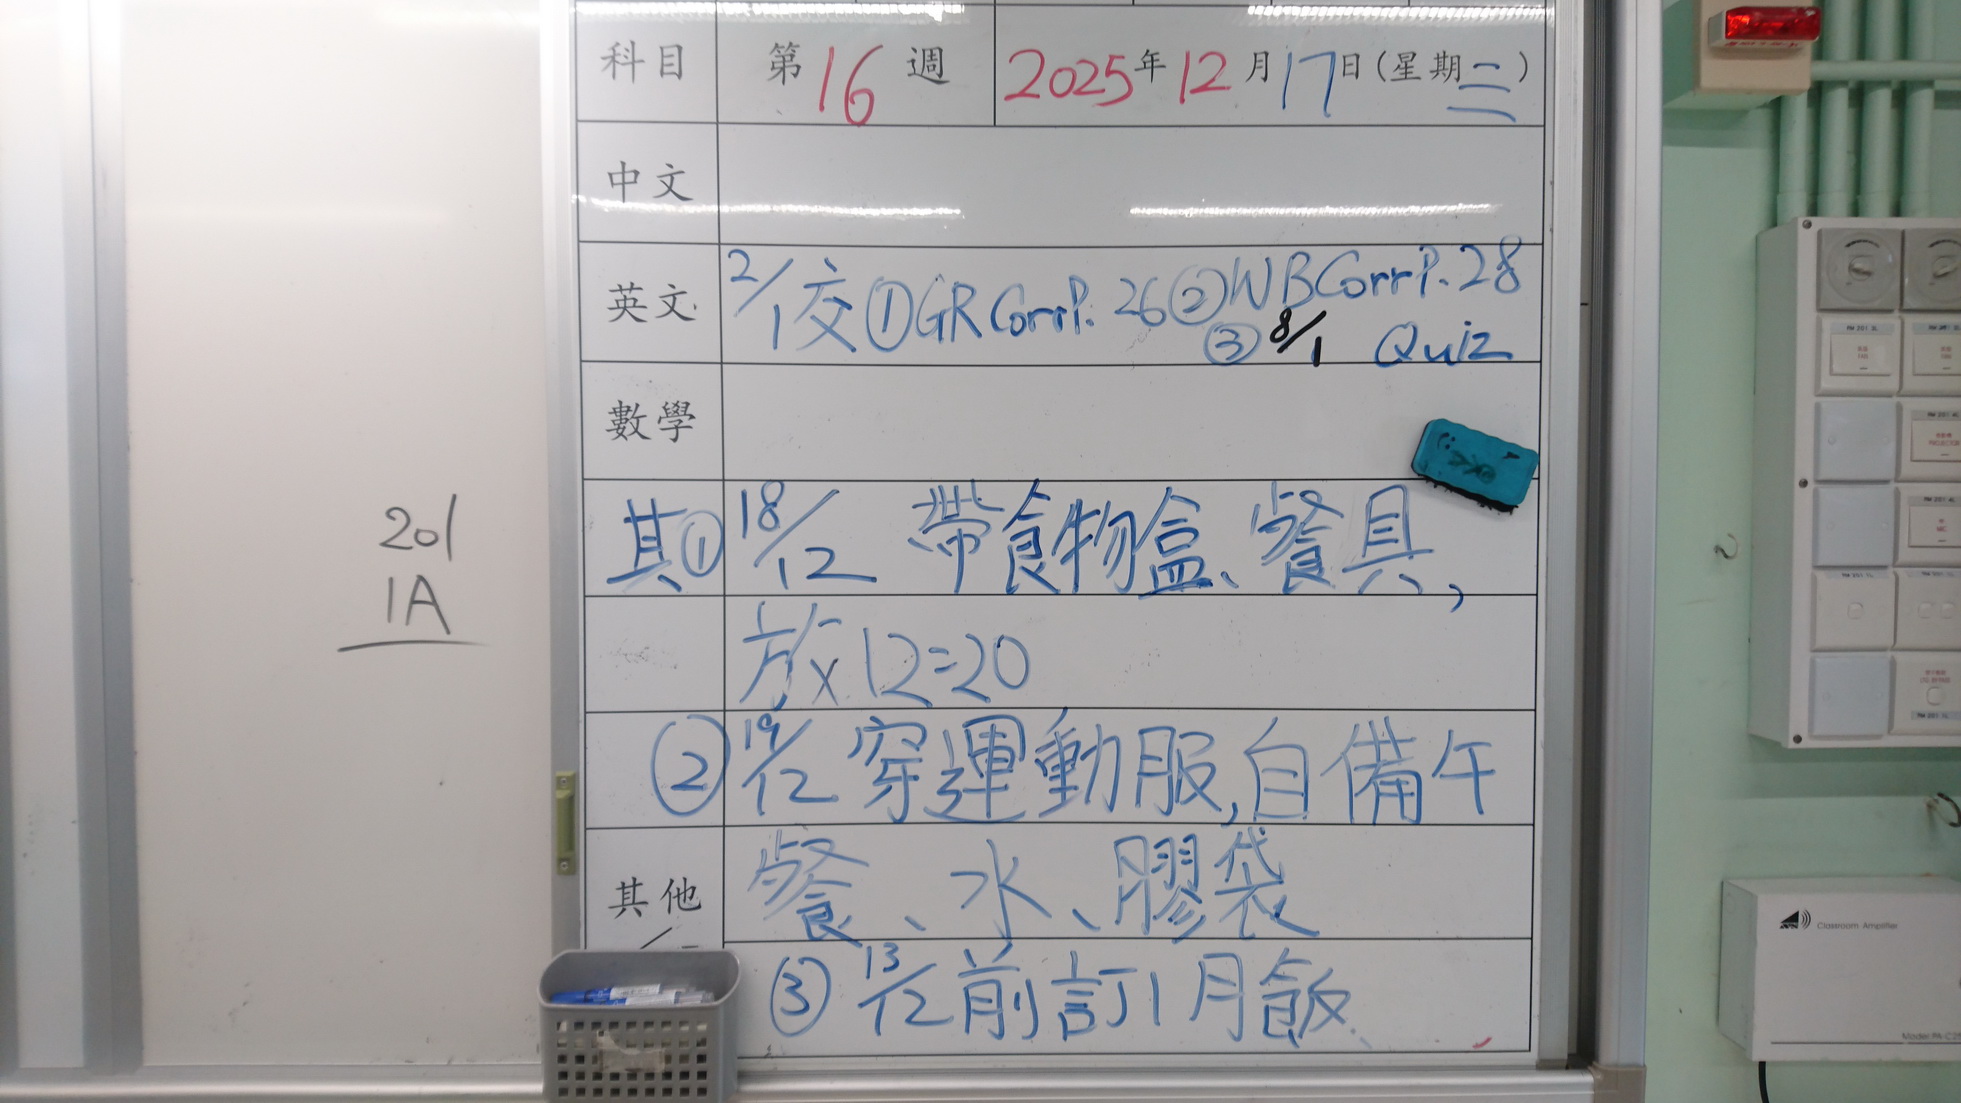 科目 第16週 2025年12月17日(星期三)
中文
英文 2/1交①GR Corr P. 26②WB Corr P. 28
③8/1 Quiz
數學
其① 18/12 帶食物盒、餐具,
放x 12=20
②19/12 穿運動服,自備午
其他 餐、水、膠袋
③13/12前訂1月飯
201
1A
Classroom Amplifier